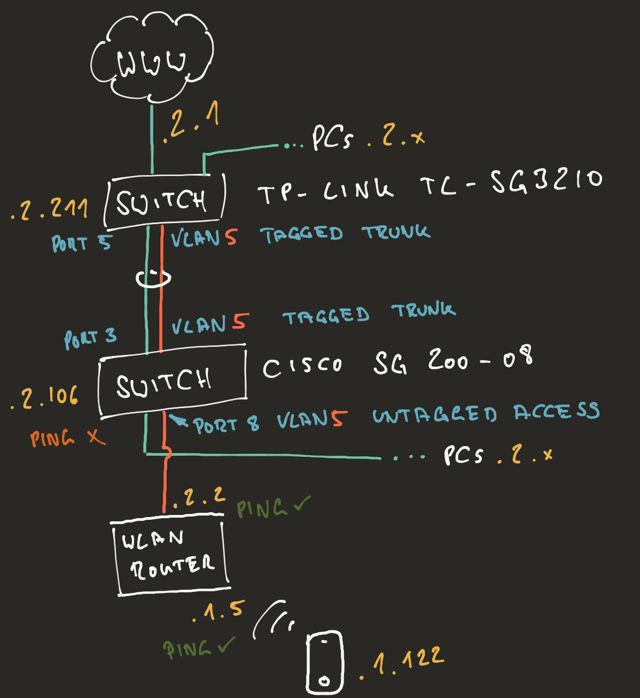 WWW
.2.1
... PCs .2.x
.2.211 SWITCH TP-LINK TC-SG3210
PORT 5 VLAN5 TAGGED TRUNK
PORT 3 VLAN5 TAGGED TRUNK
.2.106 SWITCH CISCO SG 200-08
PING X PORT 8 VLAN5 UNTAGGED ACCESS
... PCs .2.x
.2.2 PING ✓
WLAN
ROUTER
.1.5
PING ✓
.1.122